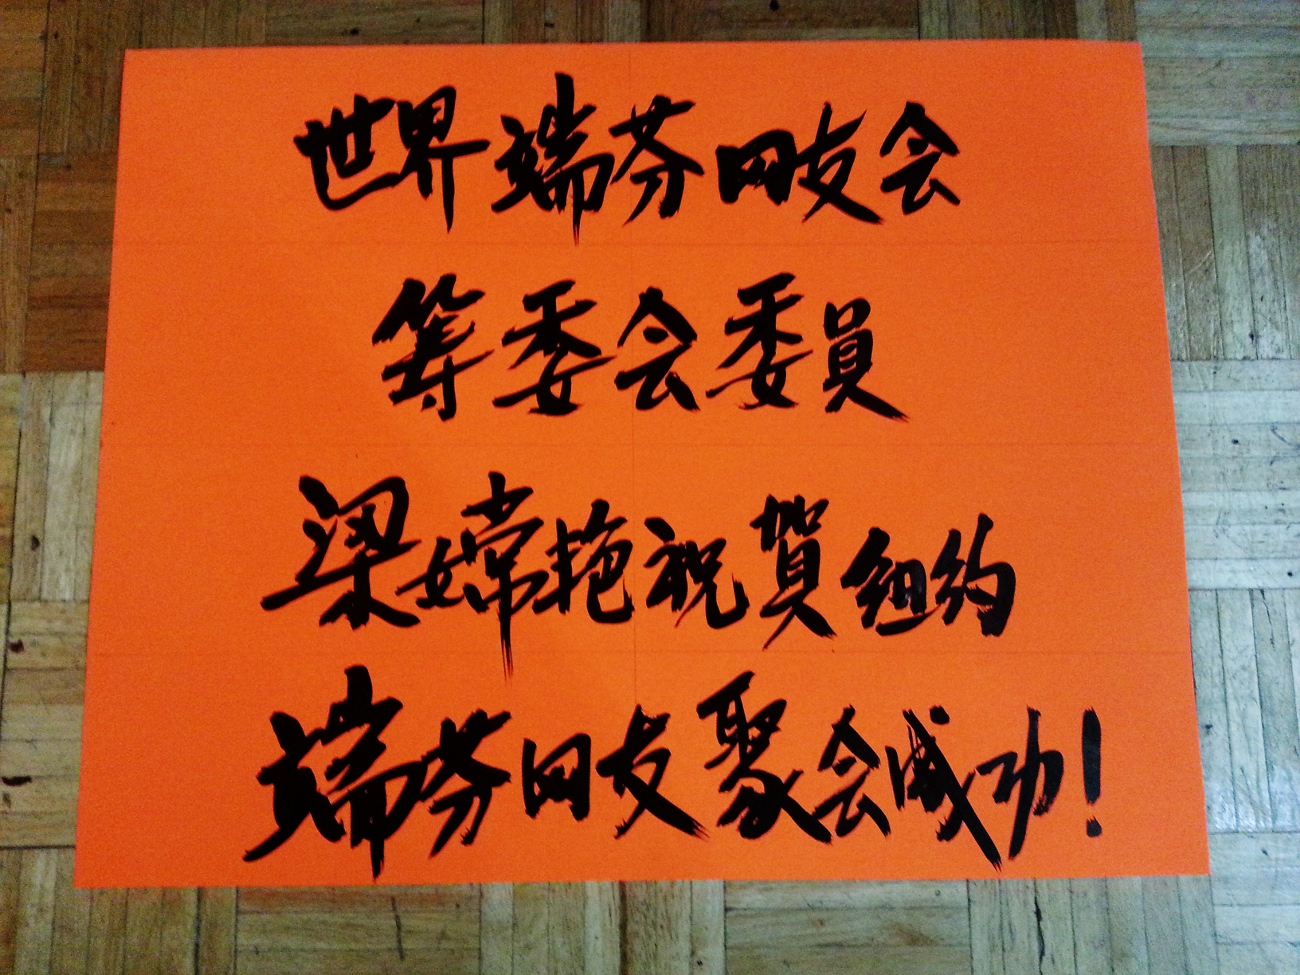 世界端芬网友会
筹委会委員
梁嫦艳祝賀纽约
端芬网友聚会成功!